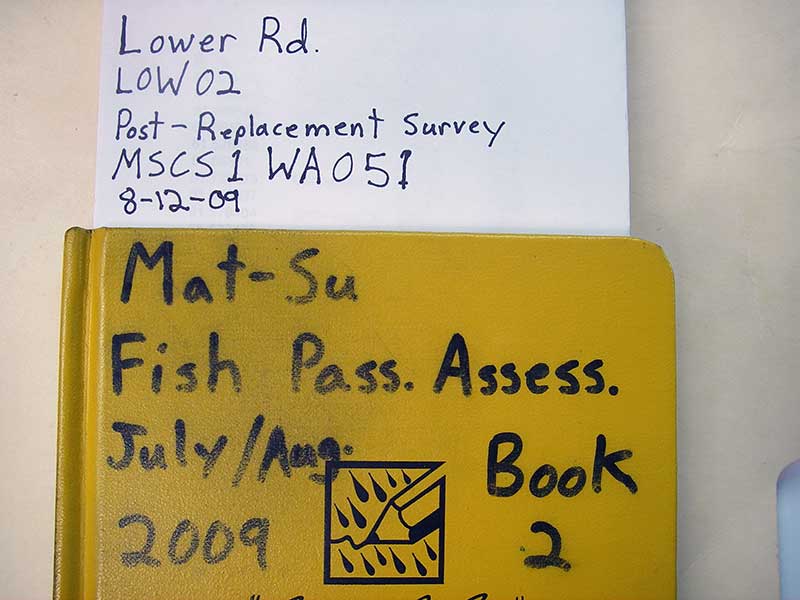 Lower Rd.
LOW02
Post-Replacement Survey
MSCS1 WA051
8-12-09
Mat-Su
Fish Pass. Assess.
July/Aug.
2009
Book
2